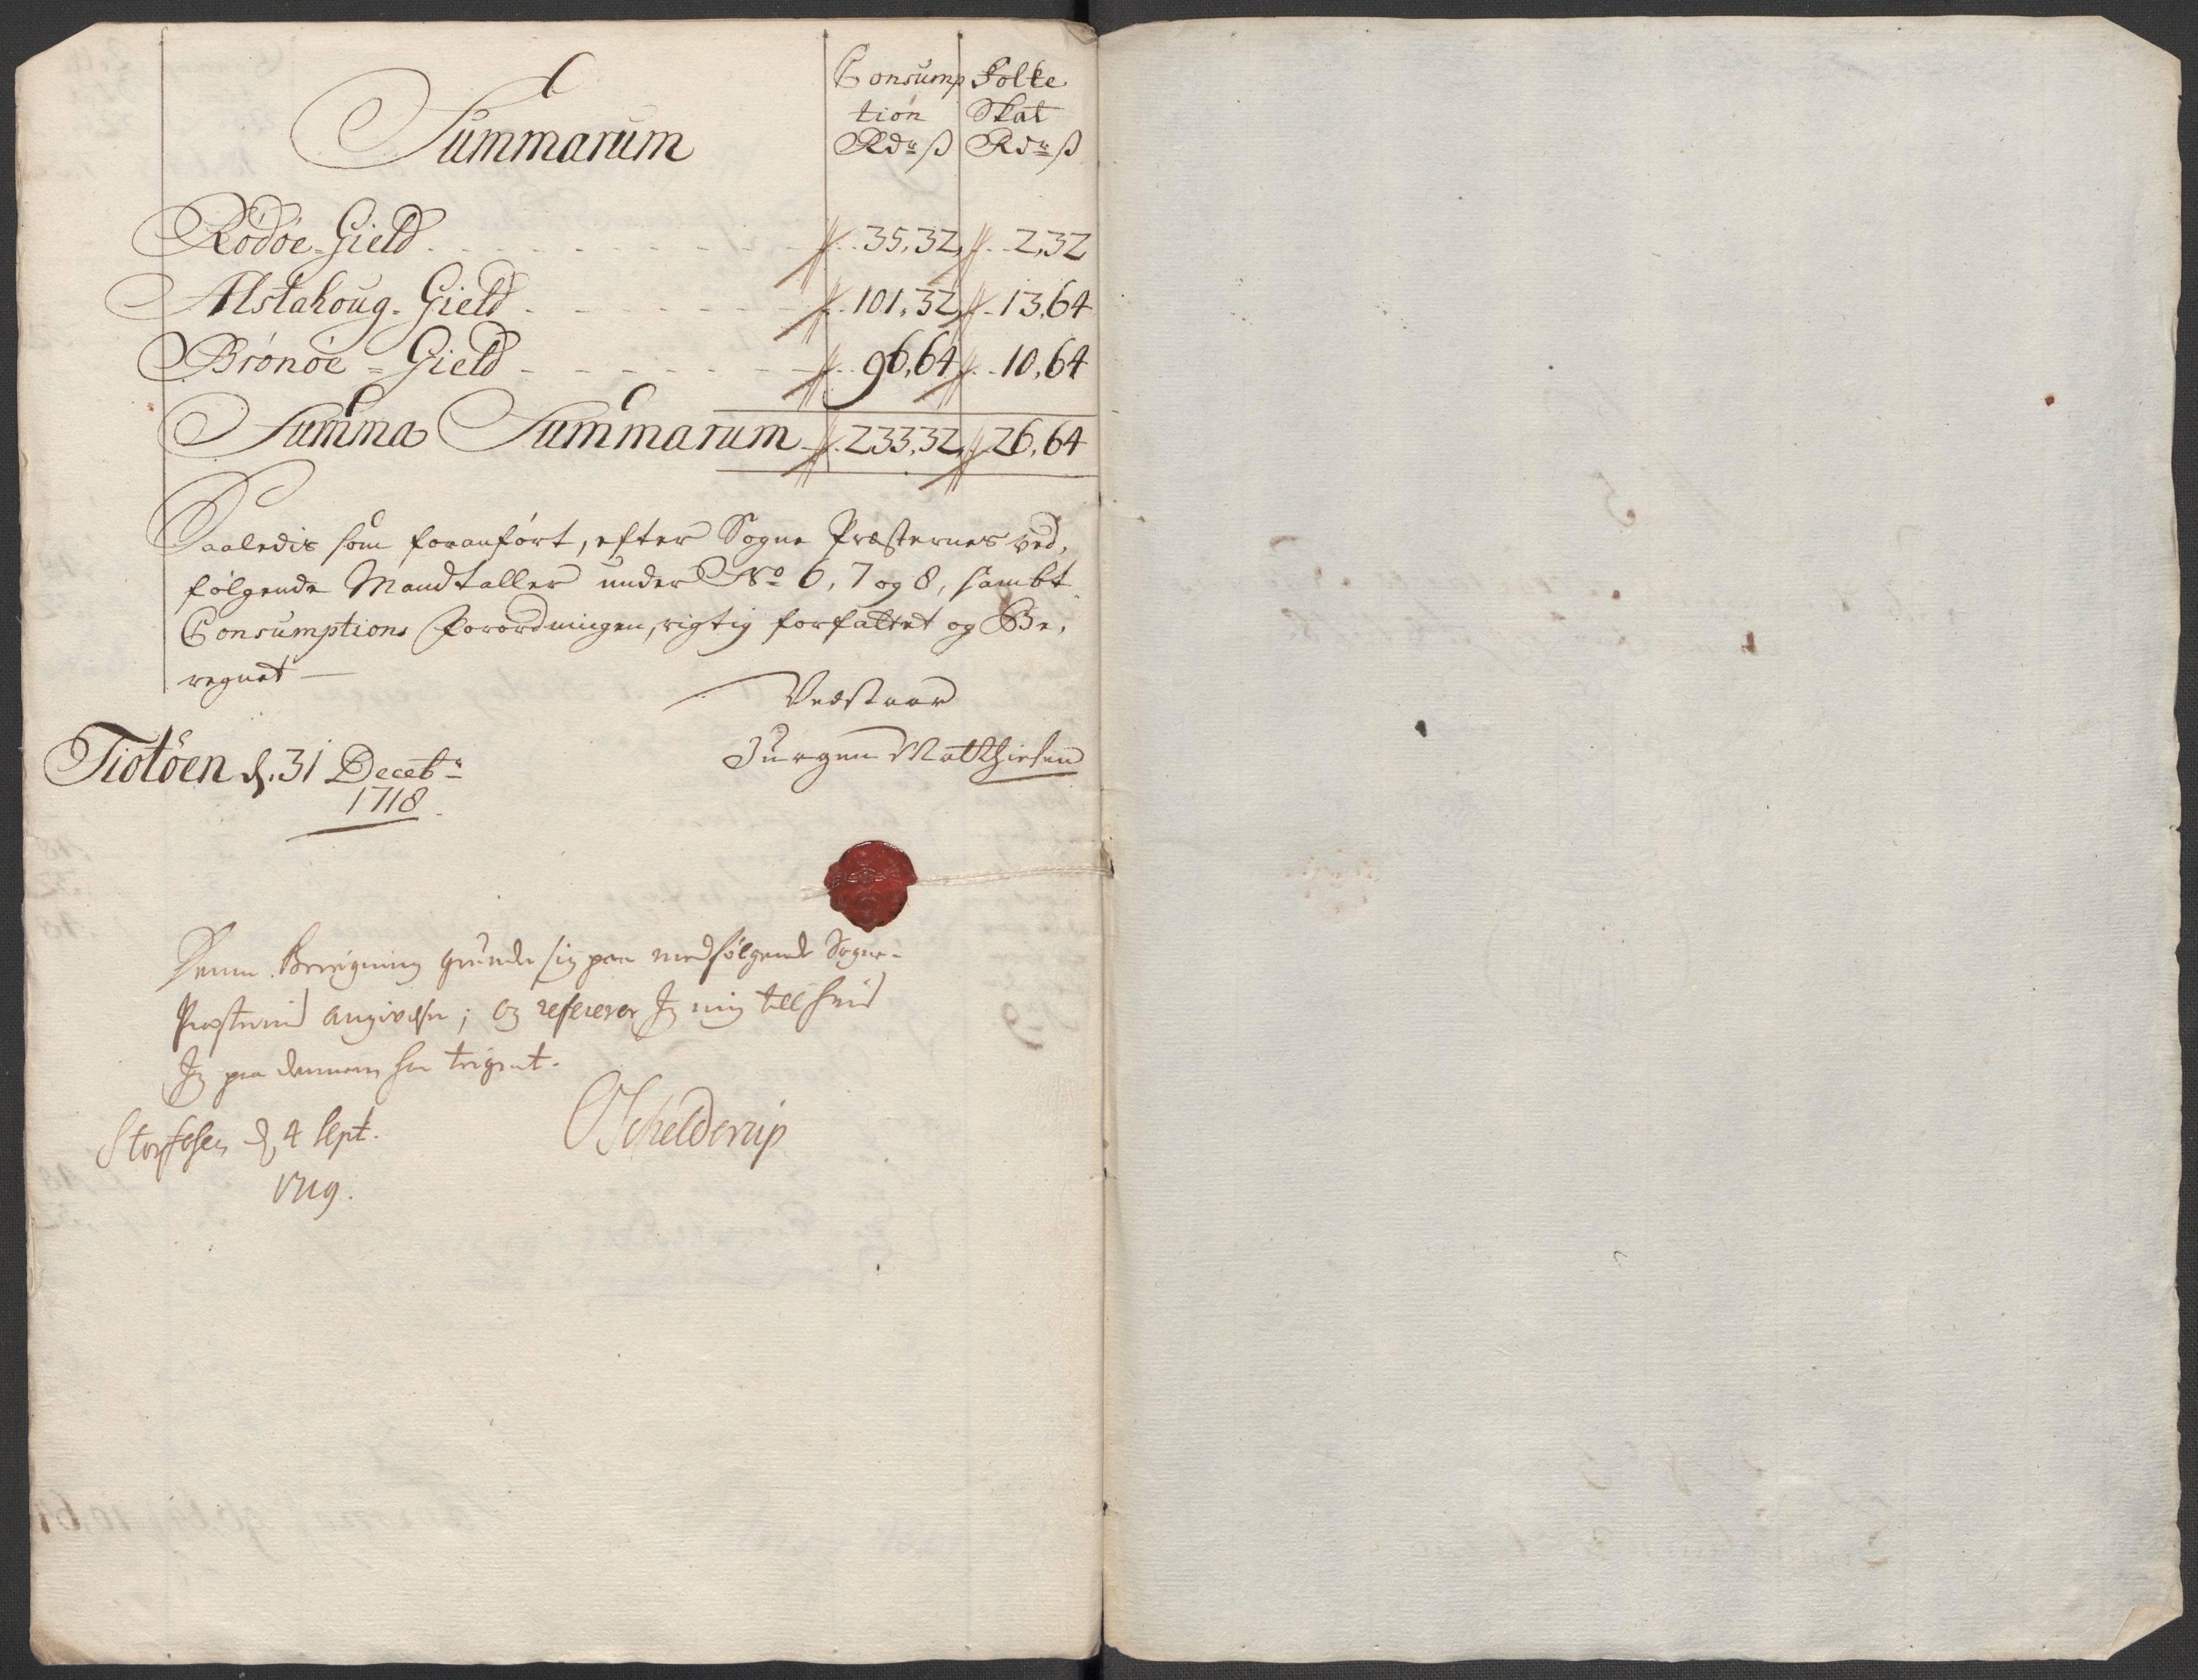 Summarum
Consump Folke
tion Skat
Rdr ß Rdr ß
Rödöe-Gield 35,32 2,32
Alstahoug-Gield 101,32 13,64
Brönöe-Gield 96,64 10,64
Summa Summarum 233,32 26,64
Saaledis som foranfört, efter Sogne Præsternes ved,
følgende Mandtaller under No 6, 7 og 8, sambt
Consumptions Forordningen, rigtig forfattet og Be,
regnet
Vedstaar
Jürgen Matthiesen
Tiotöen d. 31 Decebr
1718
Denne Beregning grunder sig paa medfølgende Sogne-
Præsternis angivelse; og refererer Jeg mig till hvis
Jeg paa dennem har teignet.
Storfosen d 4 Sept.
1719.
OSchelderup